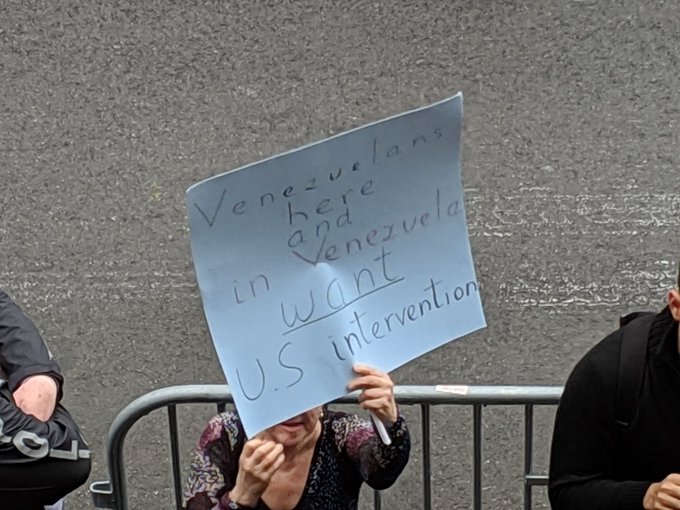 Venezuelans
here
and
in Venezuela
want
U.S intervention